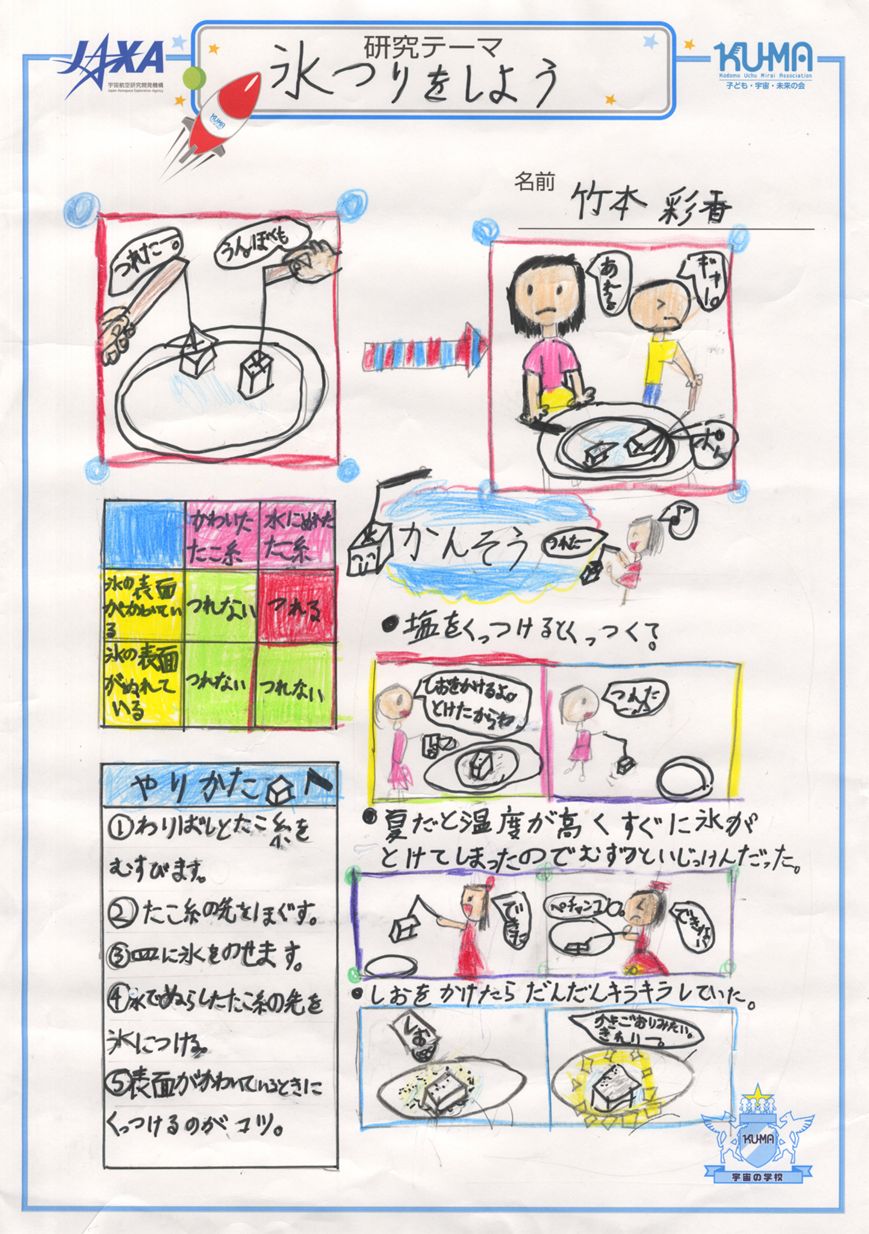 JAXA
宇宙航空研究開発機構
Japan Aerospace Exploration Agency
研究テーマ
氷つりをしよう
KU-MA
Kodomo Uchu Mirai Association
子ども・宇宙・未来の会
KU-MA
名前
竹本 彩香
つれたー。
うんぼくも
あれる
ギャー。
かわいた
たこ糸
水にぬれた
たこ糸
氷の表面
がかわいている
つれない
つれる
氷の表面
がぬれて
いる
つれない
つれない
かんそう
つれたー
♪
●塩をくっつけるとくっつくて。
しおをかけるよ。
とけたからね
つれた
●夏だと温度が高くすぐに氷が
とけてしまったのでむずかしいじっけんだった。
できた
ペチャンコ
できない
●しおをかけたらだんだんキラキラしていた。
しお
かきごおりみたい。
きれいー。
やりかた
①わりばしとたこ糸を
むすびます。
②たこ糸の先をほぐす。
③皿に氷をのせます。
④水でぬらしたたこ糸の先を
氷につける。
⑤表面がかわいているときに
くっつけるのがコツ。
KU-MA
宇宙の学校